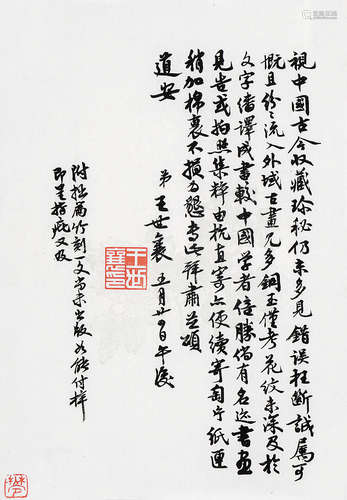 視中國古今收藏珍秘仍未多見錯誤枉斷誠屬可
慨且紛々流入外域古畫尤多銅玉僅考花紋未深及於
文字倘譯成書較中國學者倍勝倘有名迹書画
見告或拍照集粹由杭直寄之便續寄匋片紙裏
稍加棉裹不損為懇專此拜肅並頌
道安
弟王世襄 五月廿四日午後
附拙篇竹刻一文尚未出版如能付梓
即呈指疵又及
王世襄印